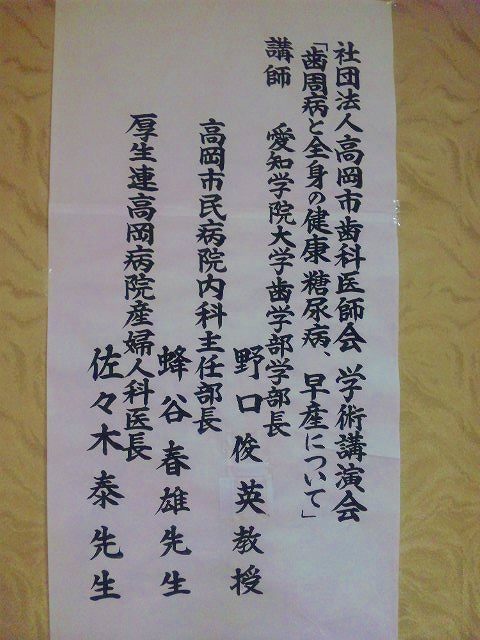 社団法人高岡市歯科医師会 学術講演会
「歯周病と全身の健康 糖尿病、早産について」
講師 愛知学院大学歯学部学部長
野口俊英教授
高岡市民病院内科主任部長
蜂谷春雄先生
厚生連高岡病院産婦人科医長
佐々木泰先生